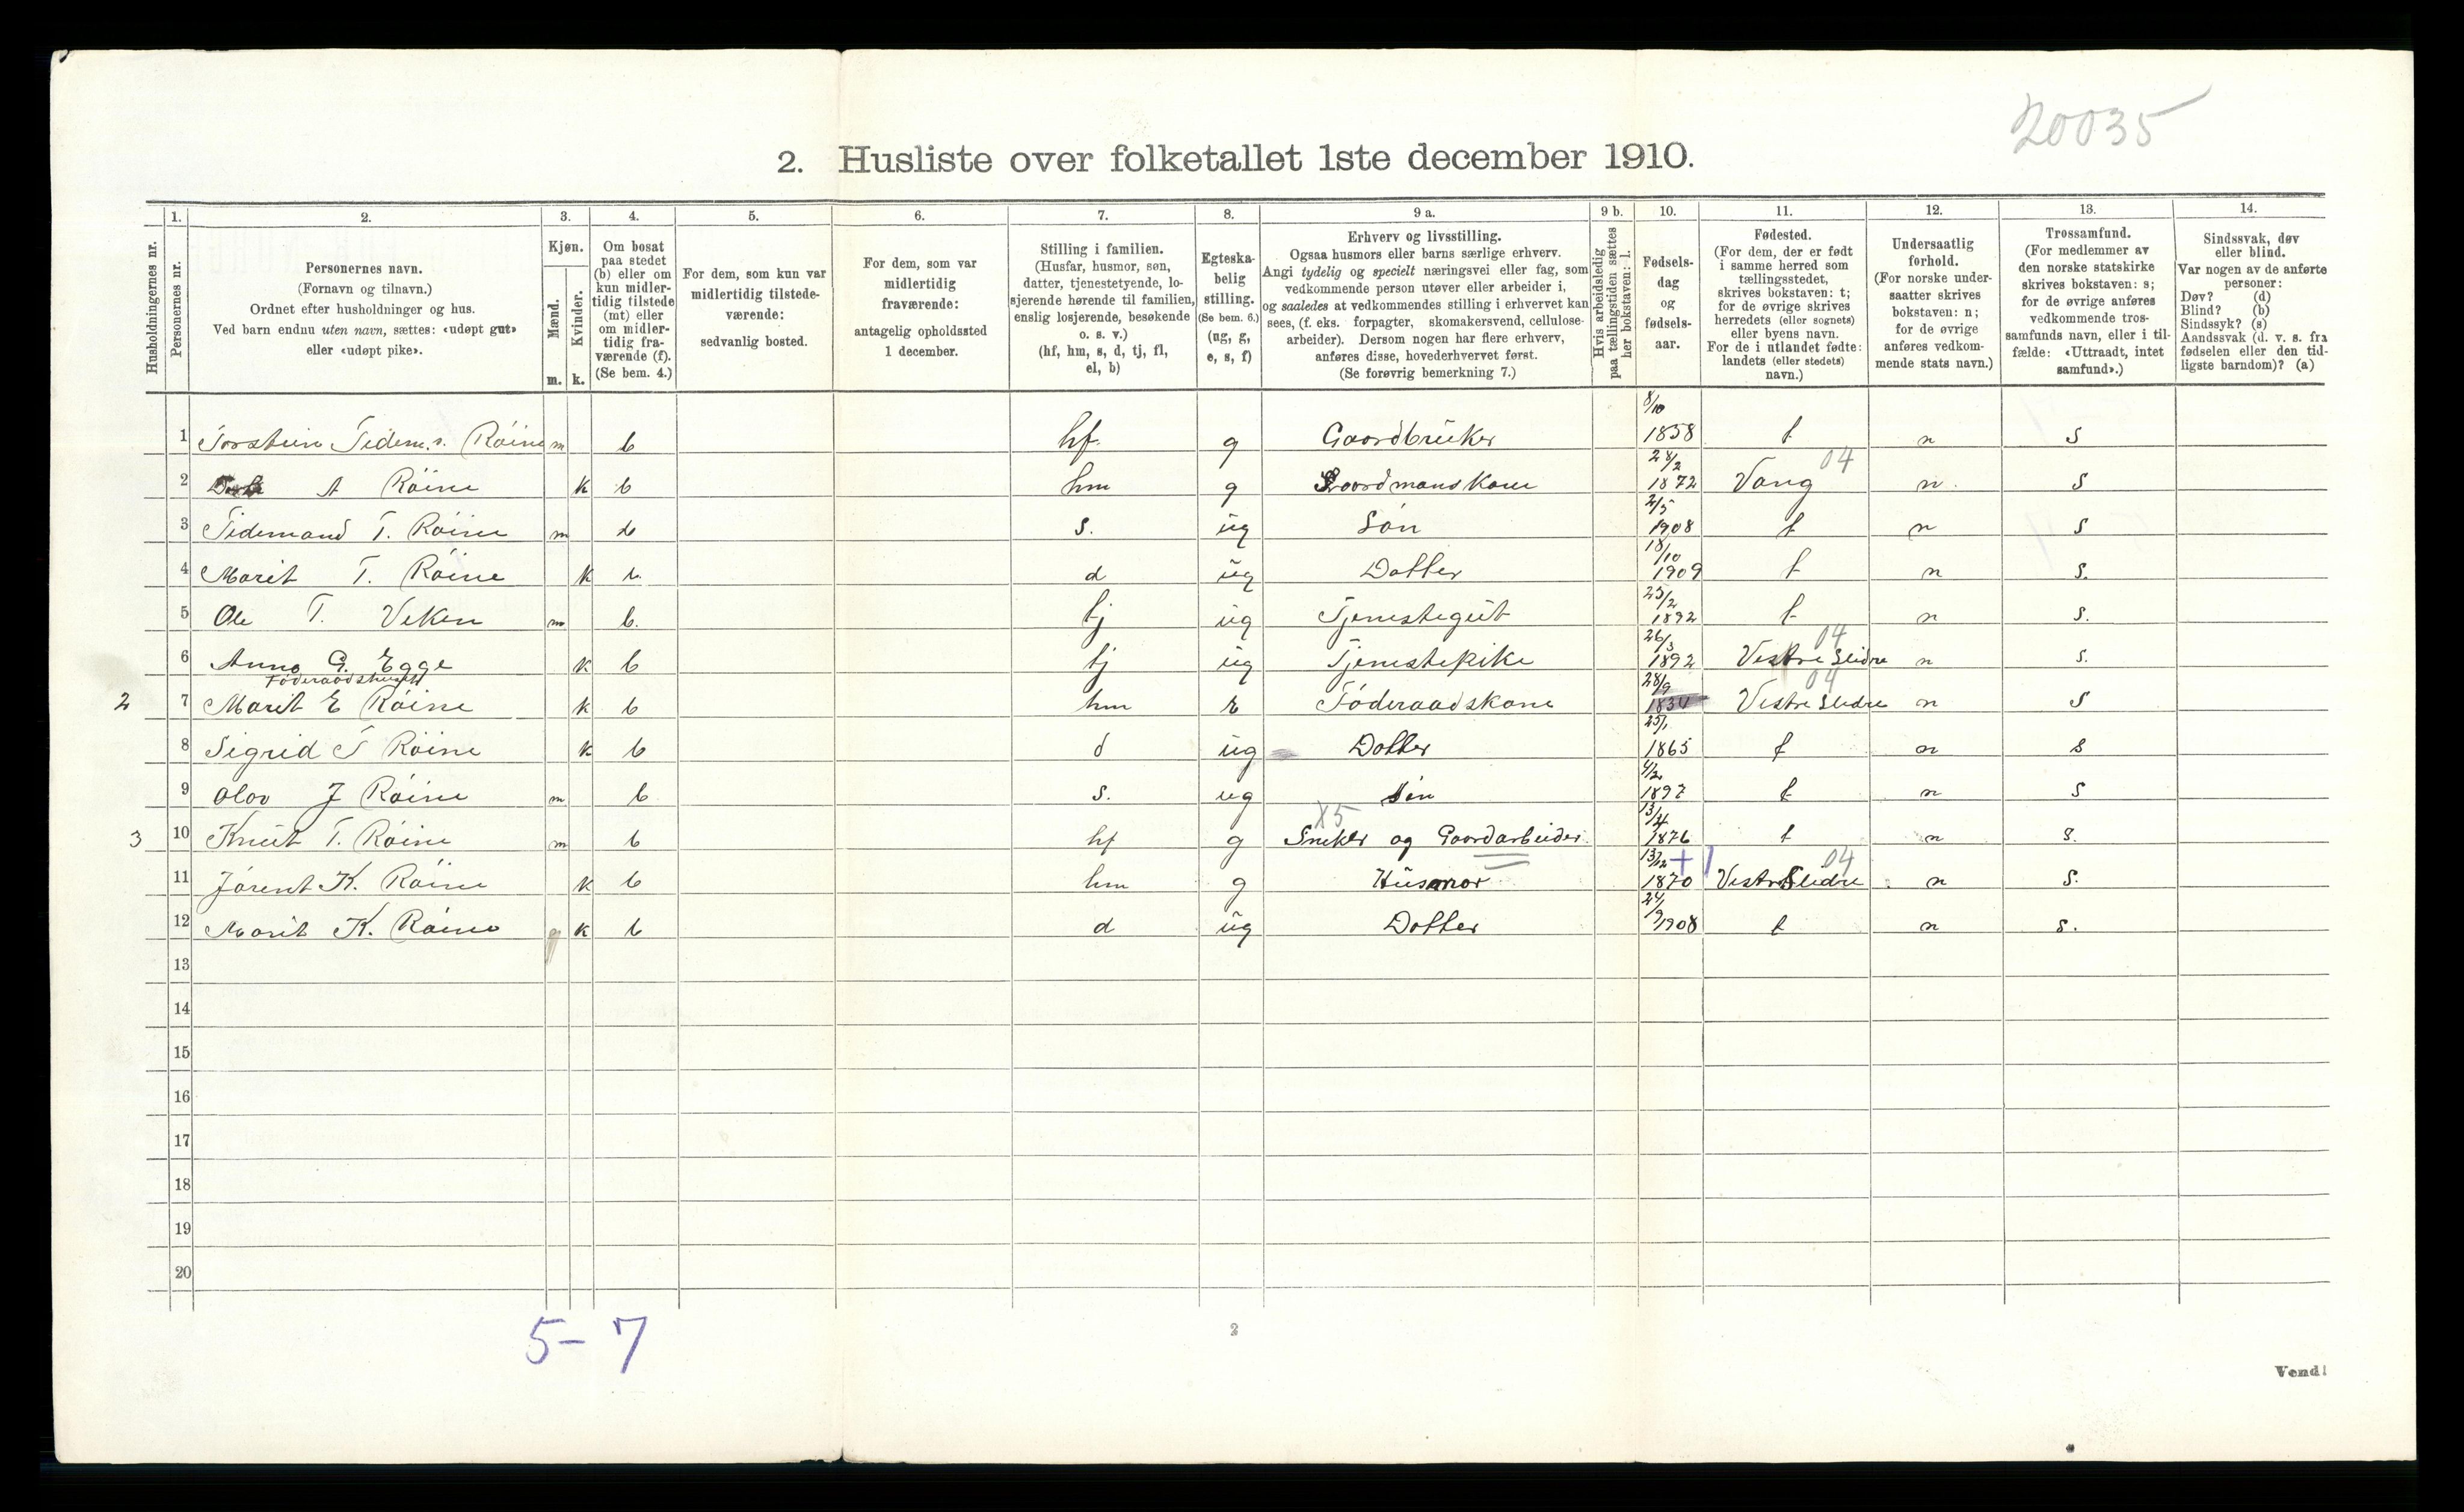 20035
2. Husliste over folketallet 1ste december 1910.
Husholdningernes nr.
1. Personernes nr.
2. Personernes navn.
(Fornavn og tilnavn.)
Ordnet efter husholdninger og hus.
Ved barn endnu uten navn, sættes: «udøpt gut»
eller «udøpt pike».
3. Kjøn.
Mænd. m.
Kvinder. k.
4. Om bosat
paa stedet
(b) eller om
kun midler-
tidig tilstede
(mt) eller
om midler-
tidig fra-
værende (f).
(Se bem. 4.)
5. For dem, som kun var
midlertidig tilstede-
værende:
sedvanlig bosted.
6. For dem, som var
midlertidig
fraværende:
antagelig opholdssted
1 december.
7. Stilling i familien.
(Husfar, husmor, søn,
datter, tjenestetyende, lo-
sjerende hørende til familien,
enslig losjerende, besøkende
o. s. v.)
(hf, hm, s, d, tj, fl,
el, b)
8. Egteska-
belig
stilling.
(Se bem. 6.)
(ug, g,
e, s, f)
9 a. Erhverv og livsstilling.
Ogsaa husmors eller barns særlige erhverv.
Angi tydelig og specielt næringsvei eller fag, som
vedkommende person utøver eller arbeider i,
og saaledes at vedkommendes stilling i erhvervet kan
sees, (f. eks. forpagter, skomakersvend, cellulose-
arbeider). Dersom nogen har flere erhverv,
anføres disse, hovederhvervet først.
(Se forøvrig bemerkning 7.)
9 b. Hvis arbeidsledig
paa tællingstiden sættes
her bokstaven: l.
10. Fødsels-
dag
og
fødsels-
aar.
11. Fødested.
(For dem, der er født
i samme herred som
tællingsstedet,
skrives bokstaven: t;
for de øvrige skrives
herredets (eller sognets)
eller byens navn.
For de i utlandet fødte:
landets (eller stedets)
navn.)
12. Undersaatlig
forhold.
(For norske under-
saatter skrives
bokstaven: n;
for de øvrige
anføres vedkom-
mende stats navn.)
13. Trossamfund.
(For medlemmer av
den norske statskirke
skrives bokstaven: s;
for de øvrige anføres
vedkommende tros-
samfunds navn, eller i til-
fælde: «Uttraadt, intet
samfund».)
14. Sindssvak, døv
eller blind.
Var nogen av de anførte
personer:
Døv? (d)
Blind? (b)
Sindssyk? (s)
Aandssvak (d. v. s. fra
fødselen eller den tid-
ligste barndom)? (a)
1 Torstein Tidem.s. Röine m b hf. g Gaardbruker 8/10 1858 t n s
2 A Röine k b hm g Gaardmanskone 28/2 1872 Vang 04 n. s
3 Tidemand T. Röine m b s. ug Sön 2/5 1908 t n s
4 Marit T. Röine k b. d ug Datter 18/10 1909 t n s.
5 Ole T. Veken m b. tj ug Tjenestegut 23/2 1892 t n s.
6 Anna G. Egge k b tj ug Tjenestepike 26/3 1892 Vestre Slidre 04 n s.
Föderaadshuset
2 7 Marit E Röine k b hm e Föderaadskone 28/9 1834 Vestre Slidre 04 n s
8 Sigrid T Röine k b d ug Datter 25/1 1865 t n s
9 Olav J Röine m b s. ug Sön 4/2 1897 t n s
3 10 Knut T. Röine m b hf g X5 Sneker og Gaardarbeider. 13/4 1876 t n s.
11 Jörent K. Röine k b hm g Husmor 13/12 1870 Vestre Slidre 04 n s.
12 Marit K. Röine k b d ug Datter 24/9 1908 t n s.
13
14
15
16
17
18
19
20
5-7
2
Vend!